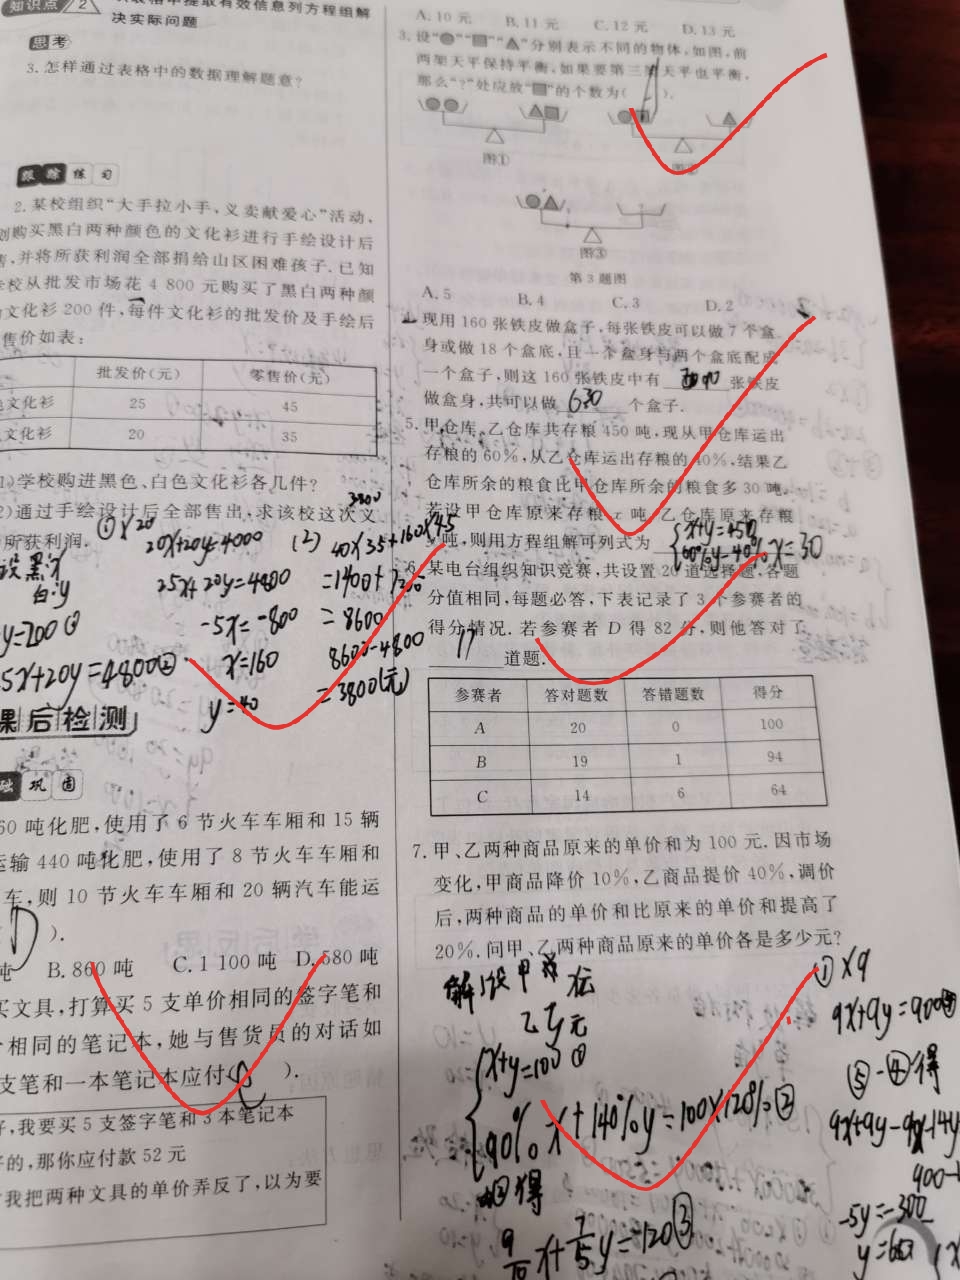 知识点 2
提取有效信息列方程组解
决实际问题
思考
3.怎样通过表格中的数据理解题意?
跟踪练习
2.某校组织“大手拉小手,义卖献爱心”活动,
购买黑白两种颜色的文化衫进行手绘设计后
,并将所获利润全部捐给山区困难孩子.已知
校从批发市场花 4 800 元购买了黑白两种颜
文化衫 200 件,每件文化衫的批发价及手绘后
售价如表:
批发价(元) 零售价(元)
文化衫 25 45
文化衫 20 35
)学校购进黑色、白色文化衫各几件?
)通过手绘设计后全部售出,求该校这次义
所获利润.
3800
①×20
20x+20y=4000
(2) 40×35+160×45
设黑:x
白:y
25x+20y=4800
=1400+7200
y=200①
-5x=-800
=8600
5x+20y=4800②
x=160
8600-4800
y=40
=3800(元)
课后检测
础巩固
60 吨化肥,使用了 6 节火车车厢和 15 辆
运输 440 吨化肥,使用了 8 节火车车厢和
车,则 10 节火车车厢和 20 辆汽车能运
D ).
吨 B.860 吨 C.1 100 吨 D.580 吨
买文具,打算买 5 支单价相同的签字笔和
相同的笔记本,她与售货员的对话如
支笔和一本笔记本应付( ).
,我要买 5 支签字笔和 3 本笔记本
的,那你应付款 52 元
我把两种文具的单价弄反了,以为要
A.10 元 B.11 元 C.12 元 D.13 元
3.设“●”“■”“▲”分别表示不同的物体,如图,前
两架天平保持平衡,如果要第三架天平也平衡,
那么“?”处应放“■”的个数为( ).
图①
图②
图③
第 3 题图
A.5 B.4 C.3 D.2
现用 160 张铁皮做盒子,每张铁皮可以做 7 个盒
身或做 18 个盒底,且一个盒身与两个盒底配成
一个盒子,则这 160 张铁皮中有 90 张铁皮
做盒身,共可以做 630 个盒子.
5.甲仓库、乙仓库共存粮 450 吨,现从甲仓库运出
存粮的 60%,从乙仓库运出存粮的 40%,结果乙
仓库所余的粮食比甲仓库所余的粮食多 30 吨.
若设甲仓库原来存粮 x 吨,乙仓库原来存粮
y 吨,则用方程组可列式为
x+y=450
60%y-40%x=30
6.某电台组织知识竞赛,共设置 20 道选择题,各题
分值相同,每题必答,下表记录了 3 个参赛者的
得分情况.若参赛者 D 得 82 分,则他答对了
17 道题.
参赛者 答对题数 答错题数 得分
A 20 0 100
B 19 1 94
C 14 6 64
7.甲、乙两种商品原来的单价和为 100 元.因市场
变化,甲商品降价 10%,乙商品提价 40%,调价
后,两种商品的单价和比原来的单价和提高了
20%.问甲、乙两种商品原来的单价各是多少元?
解:设甲 x元
乙y元
x+y=100①
90%x+140%y=100×120%②
②得
9/10x+7/5y=120③
①×9
9x+9y=900④
⑤-④得
9x+9y-9x-14y
-5y=-300
y=60